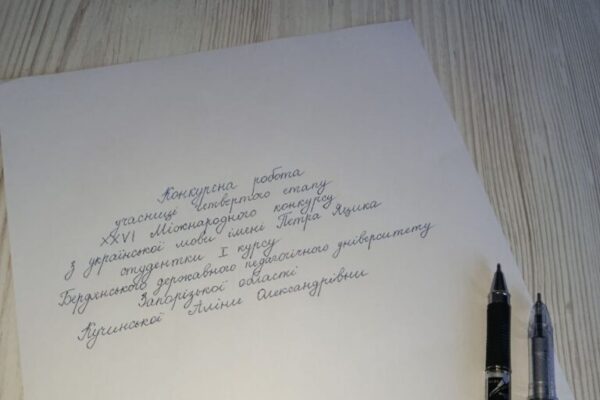 Конкурсна робота
учасниці четвертого етапу
XXVI Міжнародного конкурсу
з української мови імені Петра Яцика
студентки I курсу
Бердянського державного педагогічного університету
Запорізької області
Кучинської Аліни Олександрівни